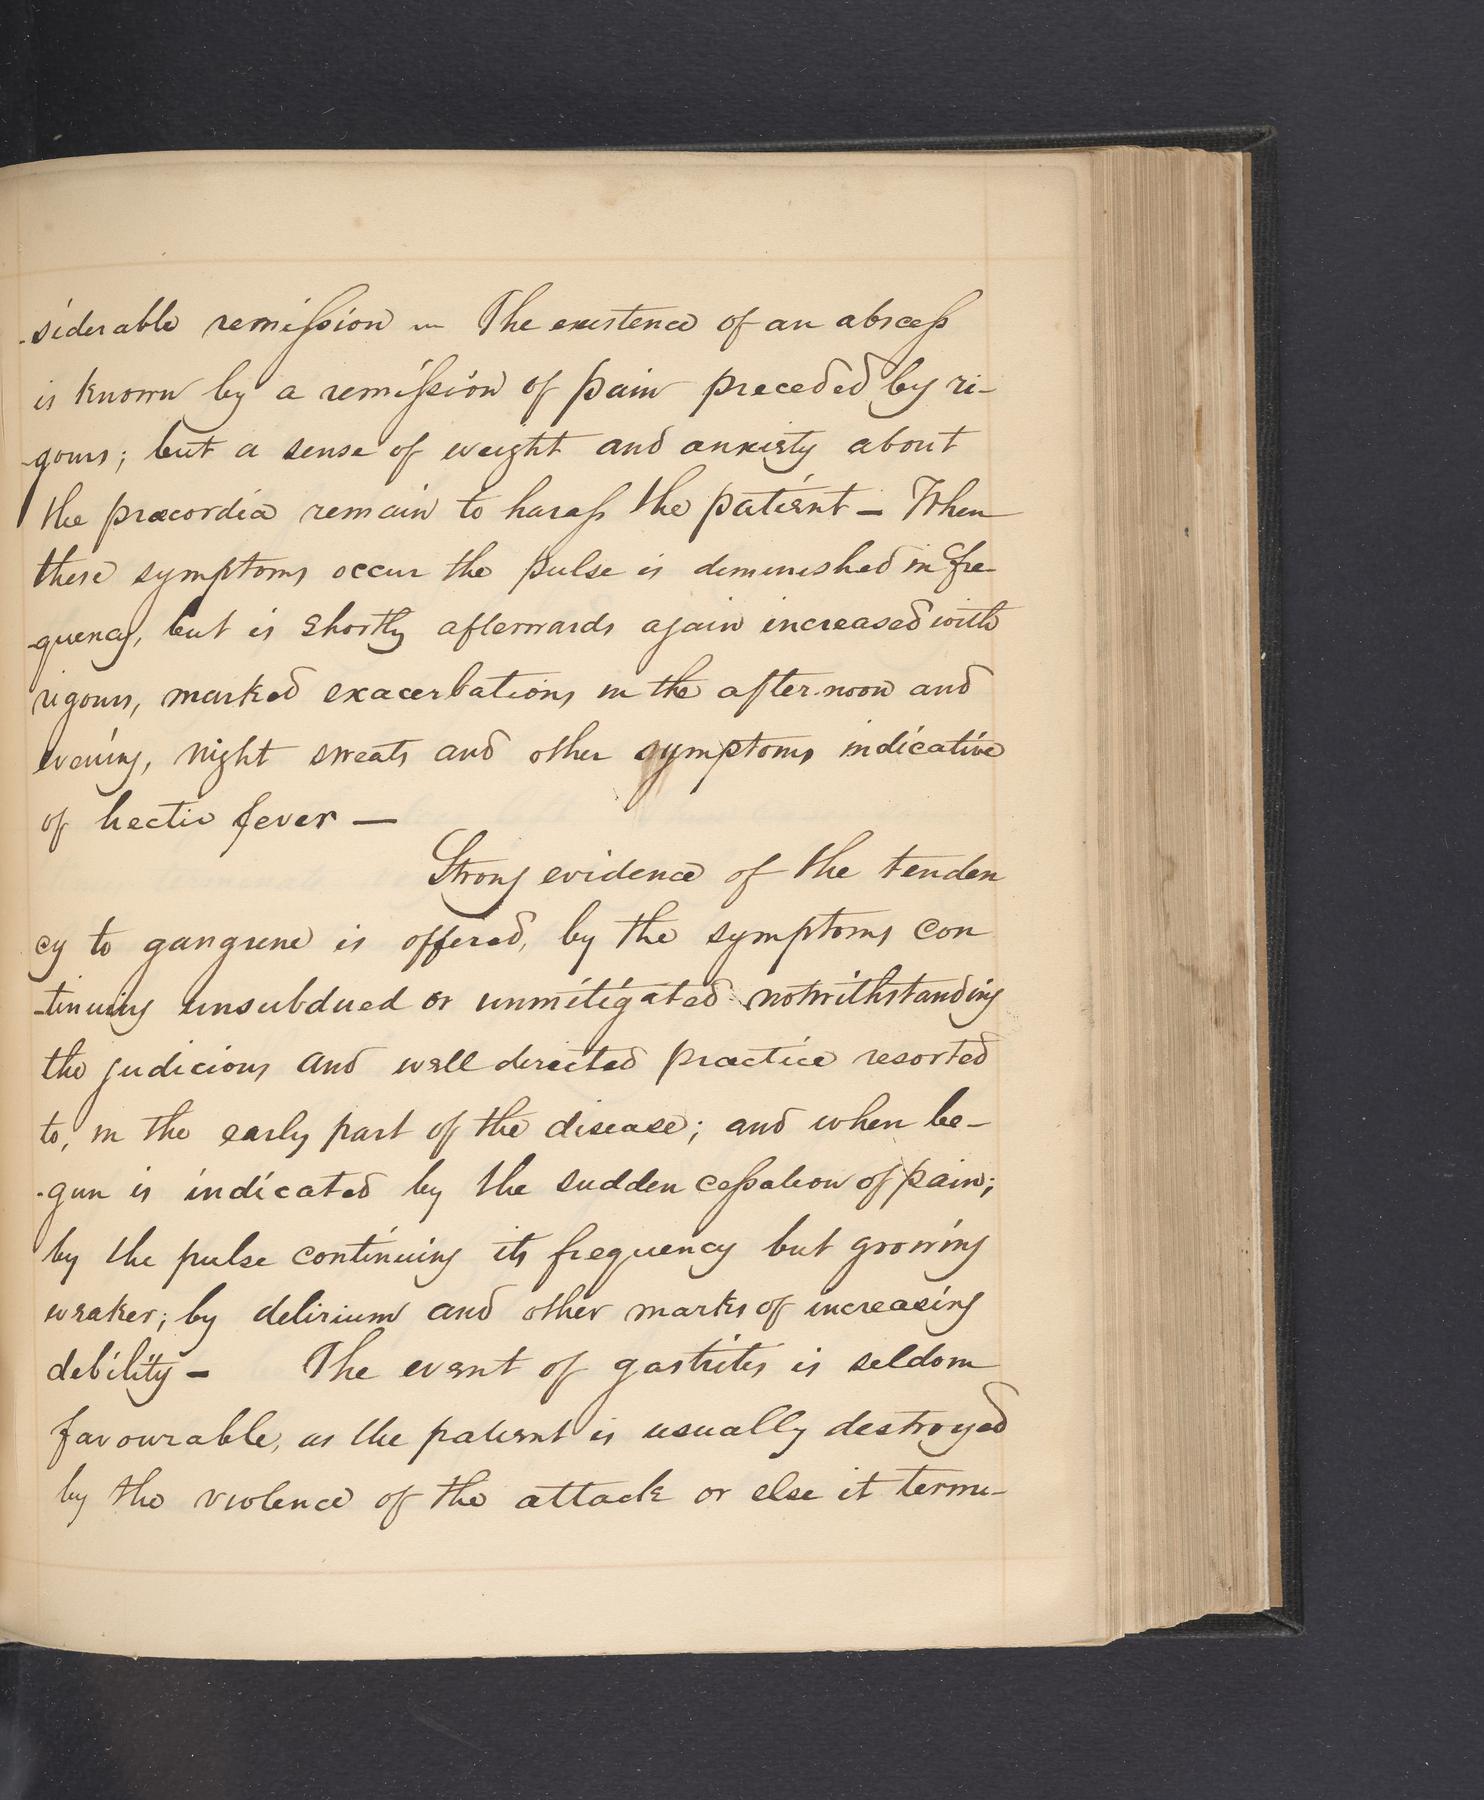 -siderable remission — The existence of an abscess
is known by a remission of pain preceded by ri-
-gours; but a sense of weight and anxiety about
the præcordia remain to harass the patient — When
these symptoms occur the pulse is diminished in fre-
-quency, but is shortly afterwards again increased with
rigours, marked exacerbations in the after-noon and
evening, night sweats and other symptoms indicative
of hectic fever —
Strong evidence of the tenden
cy to gangrene is offered, by the symptoms con
-tinuing unsubdued or unmitigated notwithstanding
the judicious and well directed practice resorted
to, in the early part of the disease; and when be-
-gun is indicated by the sudden cessation of pain;
by the pulse continuing its frequency but growing
weaker; by delirium and other marks of increasing
debility — The event of gastritis is seldom
favourable, as the patient is usually destroyed
by the violence of the attack or else it termi-